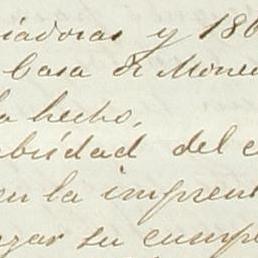 iadoras y 186
Casa de Mone
a hecho,
abildad del e
en la imprent
gar su cump